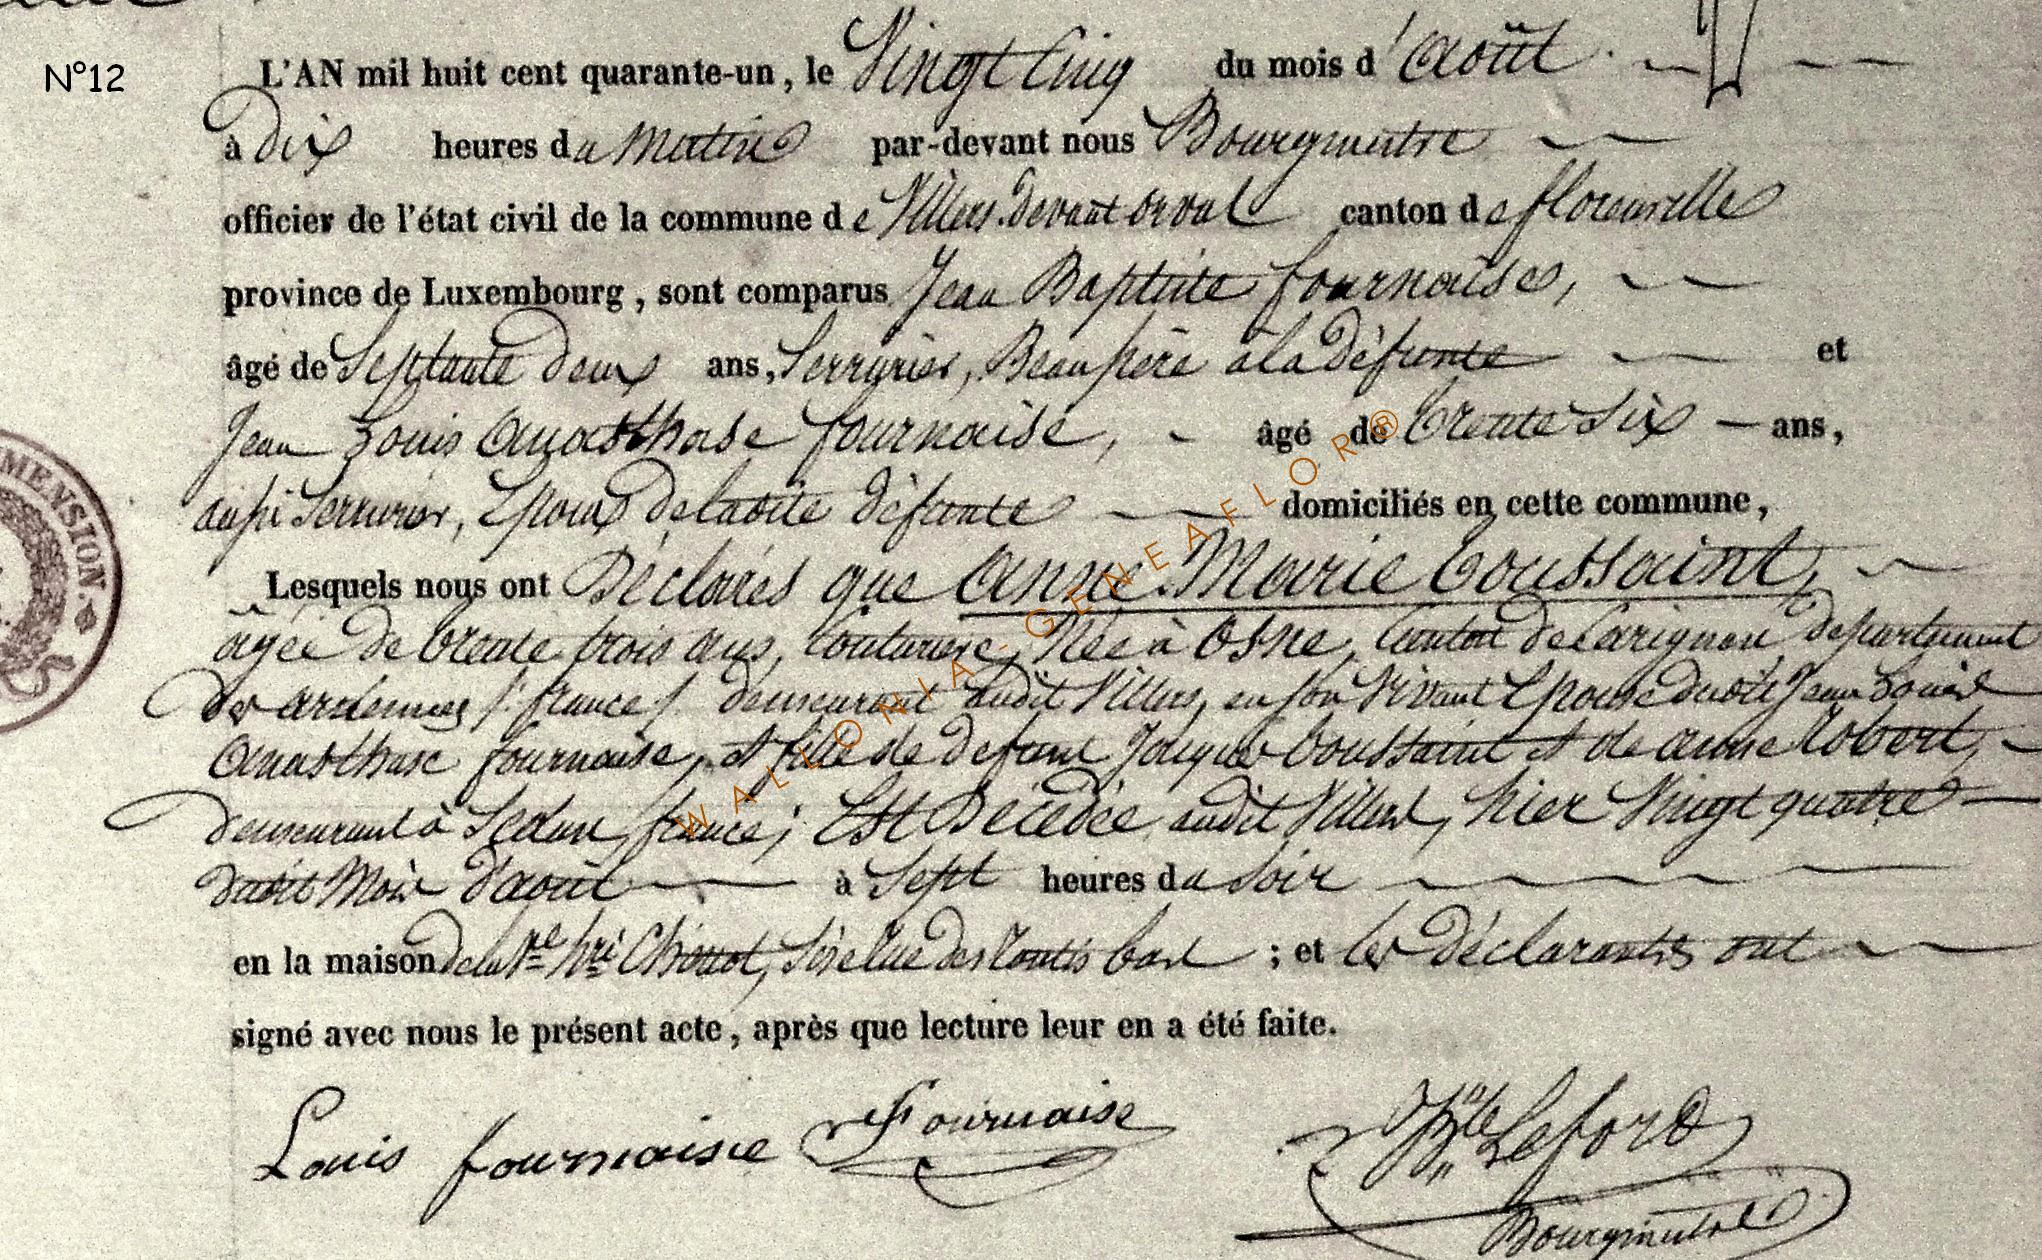 N°12
L'AN mil huit cent quarante-un, le Vingt Cinq du mois d'Août
à Dix heures du Matin par-devant nous Bourgmestre
officier de l'état civil de la commune de Villers-devant orval canton de florenville
province de Luxembourg, sont comparus Jean Baptiste fournaise,
âgé de Septante deux ans, Serrurier, Beau père à la défunte et
Jean Louis Anasthase fournaise, âgé de trente Six ans,
aussi Serrurier, Epoux de ladite défunte domiciliés en cette commune,
Lesquels nous ont Déclarés que Anne-Marie Toussaint,
agée de trente trois ans, Couturiere, Née à Osne, Canton de Carignan, departement
des ardennes /: france :/ demeurant audit Villers, en son Vivant Epouse dudit Jean Louis
Anasthase fournaise, et fille de defunt Jacques Toussaint et de anne Robert,
demeurant à Sedan, france; Est Décédée audit Villers, hier Vingt quatre
dudit Mois d'août à Sept heures du Soir
en la maison de la Ve hri Chenot, Sise Rue des bas ; et les déclarants ont
signé avec nous le présent acte, après que lecture leur en a été faite.
Louis fournaise Fournaise Bte Leford
Bourgmestre
MENSION.
WALLONIA-GENEAFLOR®